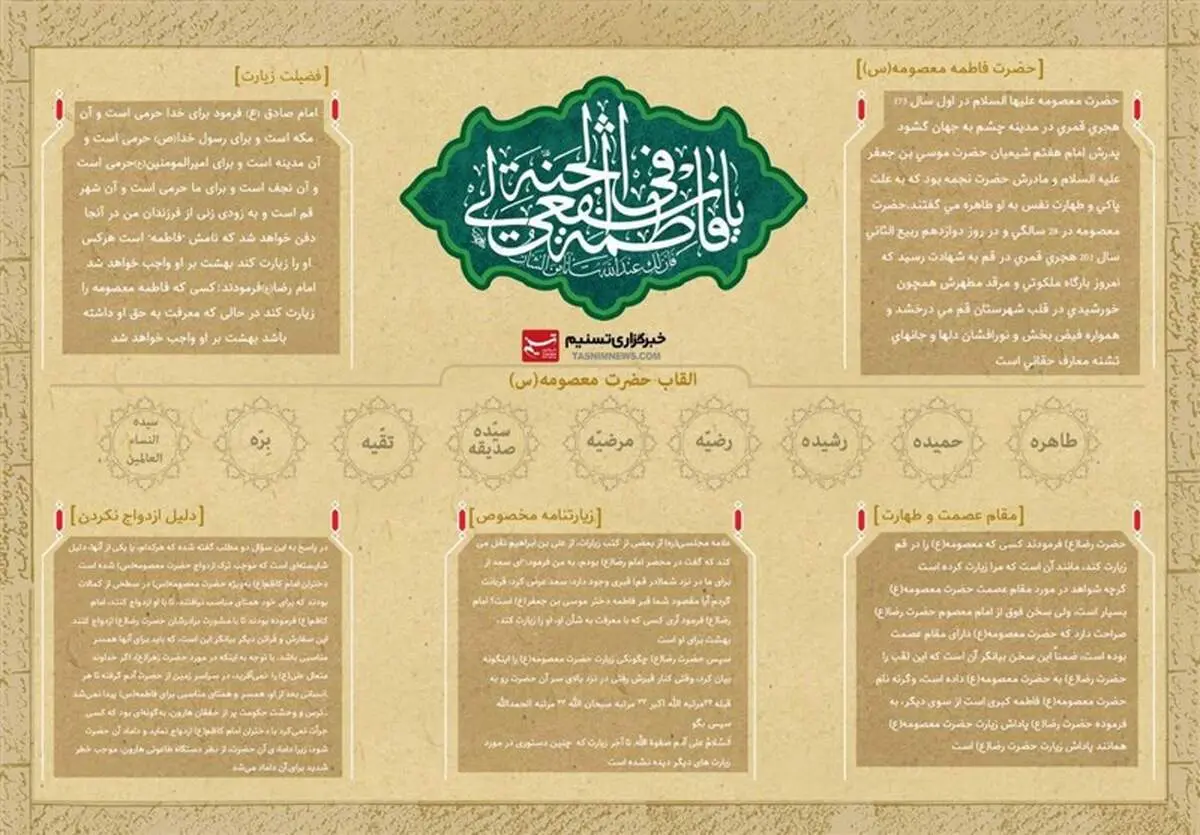 [حضرت فاطمه معصومه(س)]
حضرت معصومه علیها السلام در اول سال 173
هجري قمري در مدینه چشم به جهان گشود
پدرش امام هفتم شیعیان حضرت موسي بن جعفر
علیه السلام و مادرش حضرت نجمه بود که به علت
پاکي و طهارت نفس به او طاهره مي گفتند.حضرت
معصومه در 28 سالگي و در روز دوازدهم ربیع الثاني
سال 201 هجري قمري در قم به شهادت رسید که
امروز بارگاه ملکوتي و مرقد مطهرش همچون
خورشیدي در قلب شهرستان قم مي درخشد و
همواره فیض بخش و نورافشان دلها و جانهاي
تشنه معارف حقاني است
یا فاطمة اشفعی لی فی الجنة
فان لک عندالله شانا من الشان
خبرگزاری تسنیم
TASNIMNEWS.COM
[فضیلت زیارت]
امام صادق (ع) فرمود برای خدا حرمی است و آن
مکه است و برای رسول خدا(ص) حرمی است و
آن مدینه است و برای امیرالمومنین(ع)حرمی است
و آن نجف است و برای ما حرمی است و آن شهر
قم است و به زودی زنی از فرزندان من در آنجا
دفن خواهد شد که نامش "فاطمه" است هرکس
او را زیارت کند بهشت بر او واجب خواهد شد
امام رضا(ع)فرمودند: کسی که فاطمه معصومه را
زیارت کند در حالی که معرفت به حق او داشته
باشد بهشت بر او واجب خواهد شد
القاب حضرت معصومه(س)
طاهره
حمیده
رشیده
رضیّه
مرضیّه
سیّده
صدّیقه
تقیّه
بِرّه
سیده
النساء
العالمین
[مقام عصمت و طهارت]
حضرت رضا(ع) فرمودند کسی که معصومه(ع) را در قم
زیارت کند، مانند آن است که مرا زیارت کرده است
گرچه شواهد در مورد مقام عصمت حضرت معصومه(ع)
بسیار است، ولی سخن فوق از امام معصوم حضرت رضا(ع)
صراحت دارد که حضرت معصومه(ع) دارای مقام عصمت
بوده است، ضمناً این سخن بیانگر آن است که این لقب را
حضرت رضا(ع) به حضرت معصومه(ع) داده است، وگرنه نام
حضرت معصومه(ع) فاطمه کبری است از سوی دیگر، به
فرموده حضرت رضا(ع) پاداش زیارت حضرت معصومه(ع)
همانند پاداش زیارت حضرت رضا(ع) است
[زیارتنامه مخصوص]
علامه مجلسی(ره) از بعضی از کتب زیارات، از علی بن ابراهیم نقل می
کند که گفت در محضر امام رضا(ع) بودم، به من فرمود: ای سعد از
برای ما در نزد شما(در قم) قبری وجود دارد، سعد عرض کرد: قربانت
گردم آیا مقصود شما قبر فاطمه دختر موسی بن جعفر(ع) است؟ امام
رضا(ع) فرمود آری کسی که با معرفت به شأن او، او را زیارت کند،
بهشت برای او است
سپس حضرت رضا(ع) چگونگی زیارت حضرت معصومه(ع) را اینگونه
بیان کرد، وقتی کنار قبرش رفتی در نزد بالای سر آن حضرت رو به
قبله ۳۴مرتبه الله اکبر ۳۳ مرتبه سبحان الله ۳۳ مرتبه الحمدالله
سپس بگو
السَّلامُ علی آدم صفوة الله، تا آخر زیارت که چنین دستوری در مورد
زیارت های دیگر دیده نشده است
[دلیل ازدواج نکردن]
در پاسخ به این سؤال دو مطلب گفته شده که هرکدام، یا یکی از آنها، دلیل
شایسته‌ای است که موجب ترک ازدواج حضرت معصومه(س) شده است
دختران امام کاظم(ع) به‌ویژه حضرت معصومه(س) در سطحی از کمالات
بودند که برای خود همتای مناسب نیافتند، تا با او ازدواج کنند، امام
کاظم(ع) فرموده بودند تا با مشورت برادرشان حضرت رضا(ع) ازدواج کنند
این سفارش و قرائن دیگر بیانگر این است، که باید برای آنها همسر
مناسبی باشد، با توجه به اینکه در مورد حضرت زهرا(ع)، اگر خداوند
متعال علی(ع) را نمی‌آفرید، در سراسر زمین از حضرت آدم گرفته تا هر
انسانی بعد از او، همسر و همتای مناسبی برای فاطمه(س) پیدا نمی‌شد
ترس و وحشت حکومت پر از خفقان هارون، به‌گونه‌ای بود که کسی
جرأت نمی‌کرد با دختران امام کاظم(ع) ازدواج نماید و داماد آن حضرت
شود، زیرا دامادی آن حضرت، از نظر دستگاه طاغوتی هارون، موجب خطر
شدید برای آن داماد می‌شد